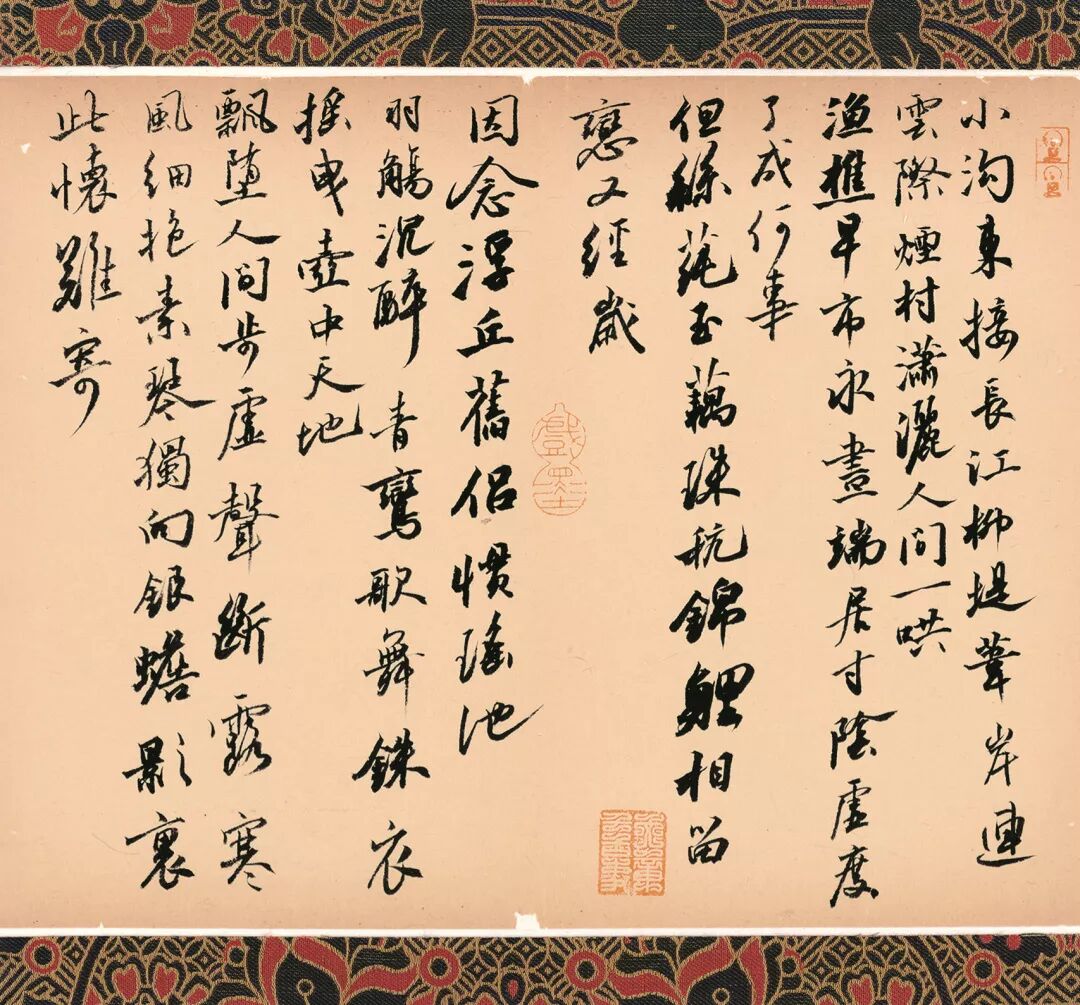 小溝東接長江柳堤葦岸連
雲際煙村瀟灑人間一哄
漁樵早市永晝端居寸陰虛度
了成何事
但絲蓴玉藕珠秔錦鯉相留
戀又經歲
因念浮丘舊侶慣瑤池
羽觴沉醉青鸞歌舞銖衣
搖曳壺中天地
飄墮人間步虛聲斷露寒
風細抱素琴獨向銀蟾影裏
此懷難寄
戲墨